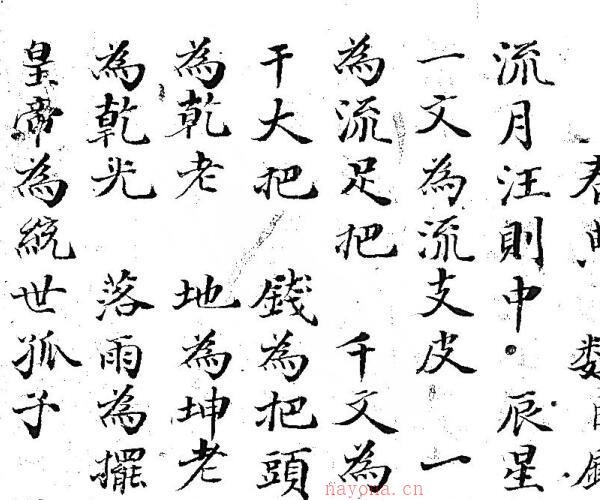 流月汪則中•辰星
一文為流支皮 一
為流足把 千文為
干大把 錢為把頭
為乾老 地為坤老
為乾光 落雨為擺
皇帝為統世孤子
nayona.cn